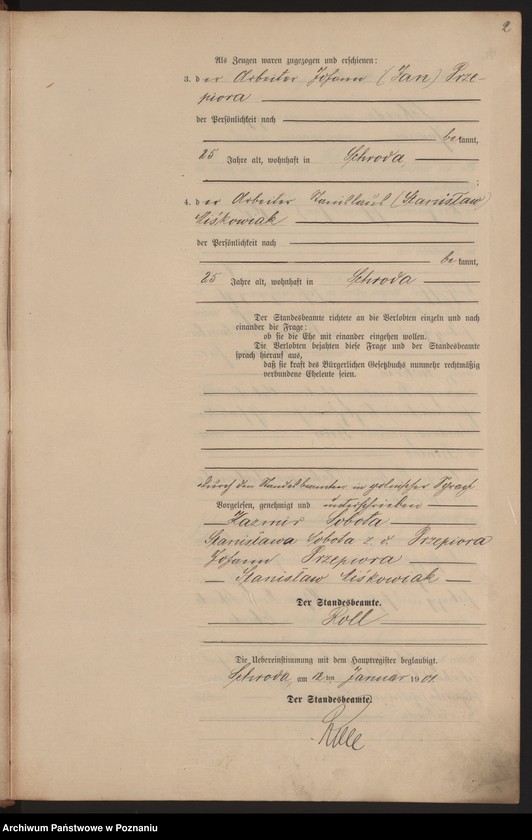 2
Als Zeugen waren zugezogen und erschienen:
3. der Arbeiter Johann (Jan) Prze-
piora
der Persönlichkeit nach
bekannt,
25 Jahre alt, wohnhaft in Schroda
;
4. der Arbeiter Stanislaus (Stanisław)
Liśkowiak
der Persönlichkeit nach
bekannt,
25 Jahre alt, wohnhaft in Schroda
Der Standesbeamte richtete an die Verlobten einzeln und nach
einander die Frage:
ob sie die Ehe mit einander eingehen wollen.
Die Verlobten bejahten diese Frage und der Standesbeamte
sprach hierauf aus,
daß sie kraft des Bürgerlichen Gesetzbuchs nunmehr rechtmäßig
verbundene Eheleute seien.
durch den Standesbeamten in polnischer Sprach
Vorgelesen, genehmigt und unterschrieben
Kazmir Sobota
Stanisława Sobota z. d. Przepiora
Johann Przepiora
Stanisław Liśkowiak
Der Standesbeamte.
Roll
Die Uebereinstimmung mit dem Hauptregister beglaubigt.
Schroda, am 12ten Januar 1901
Der Standesbeamte.
Roll
Archiwum Państwowe w Poznaniu